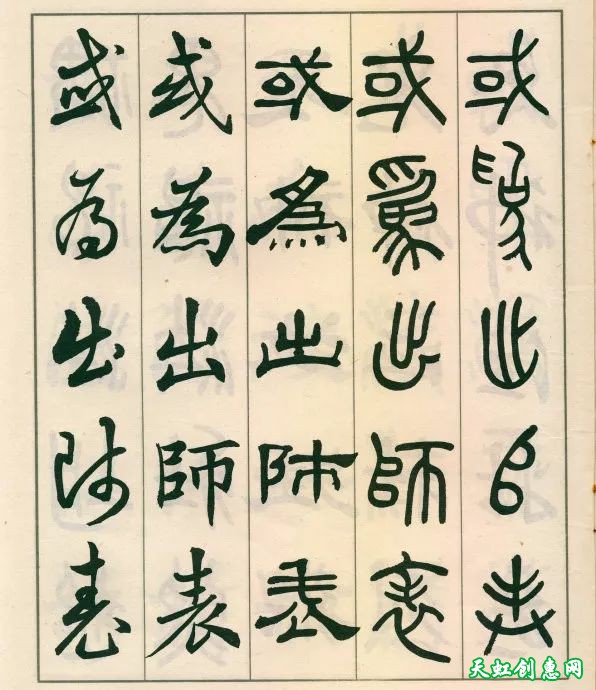 或爲出師表
或爲出師表
或為出師表
或為出師表
或為出師表
天虹创惠网